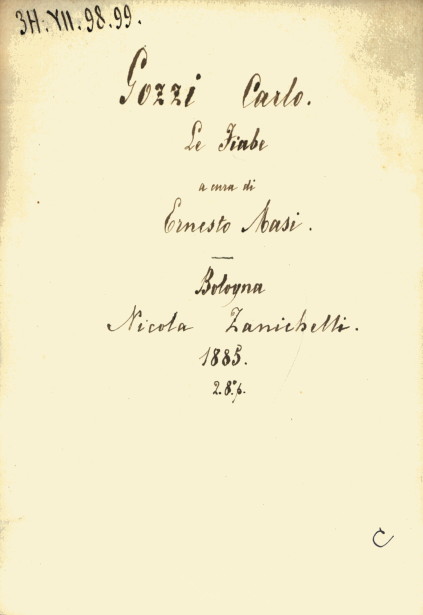 3H. VII. 98. 99.
Gozzi Carlo.
Le Fiabe
a cura di
Ernesto Masi.
Bologna
Nicola Zanichelli.
1885.
2. 8.° p.
C